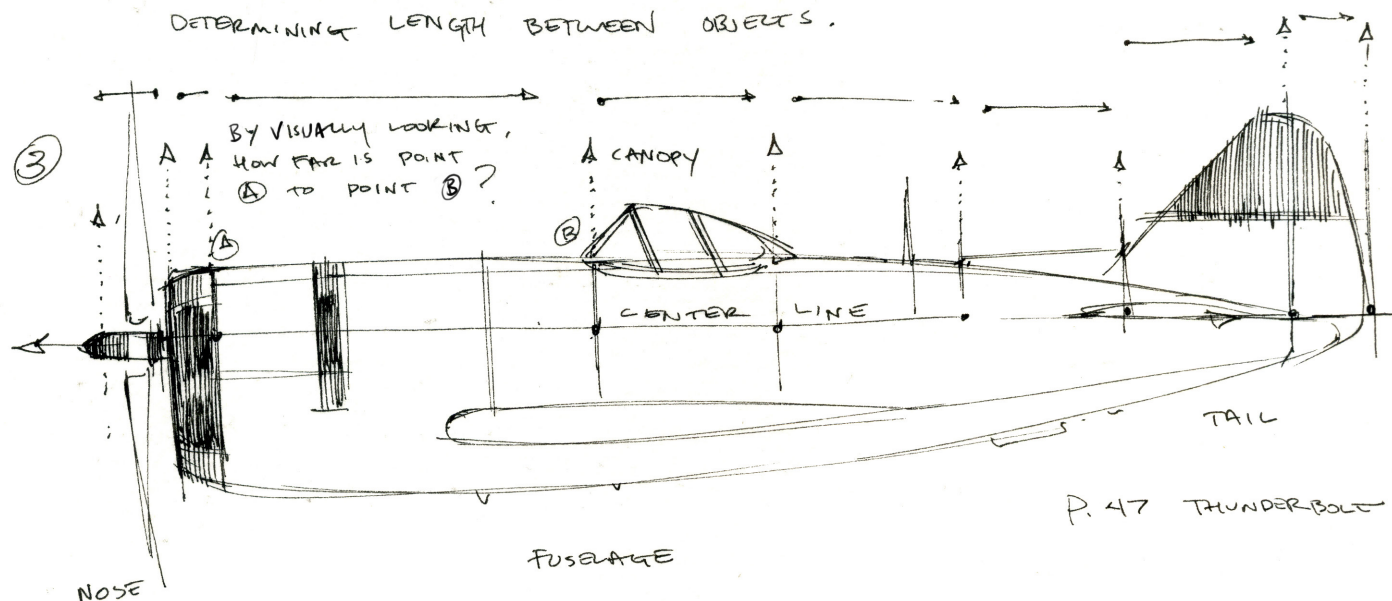 DETERMINING LENGTH BETWEEN OBJECTS.
3
BY VISUALLY LOOKING,
HOW FAR IS POINT
A TO POINT B ?
CANOPY
A
B
CENTER LINE
TAIL
P. 47 THUNDERBOLT
FUSELAGE
NOSE